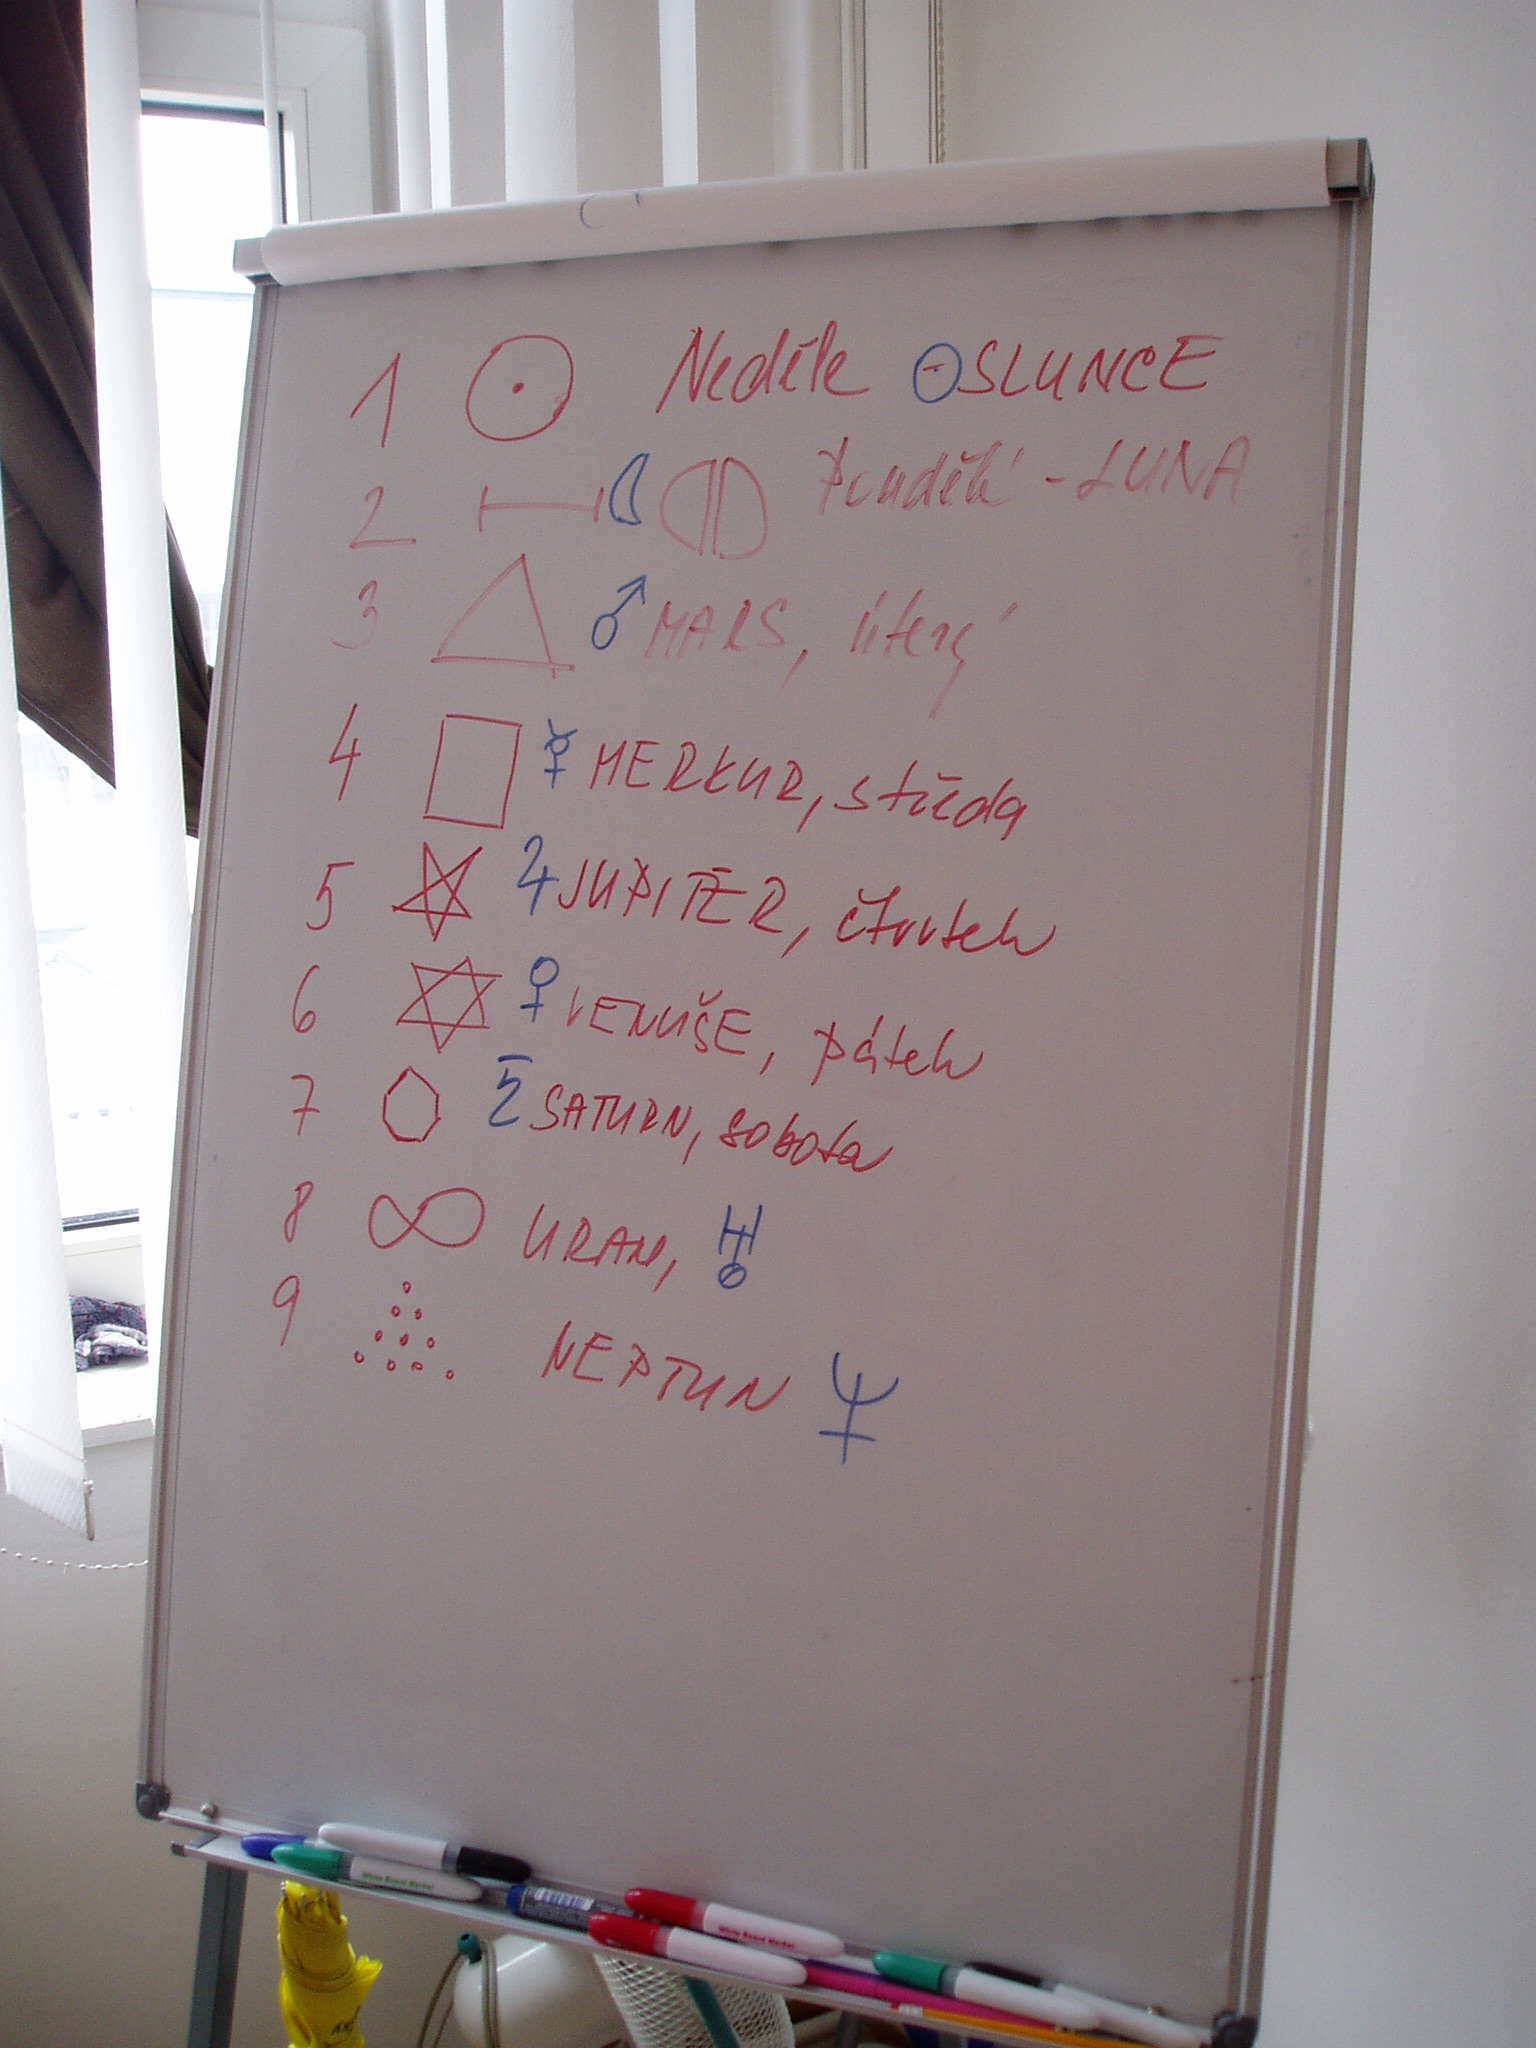 1 Neděle ☉ SLUNCE
2 Pondělí - LUNA
3 ♂ MARS, úterý
4 ☿ MERKUR, středa
5 ♃ JUPITER, čtvrtek
6 ♀ VENUŠE, pátek
7 ♄ SATURN, sobota
8 ∞ URAN, ♅
9 NEPTUN ♆
White Board Marker
White Board Marker